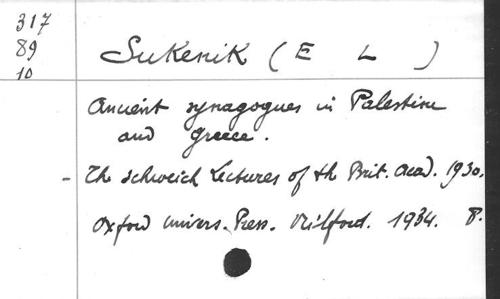 317
89
10
Sukenik (E L )
Ancient synagogues in Palestine
and Greece.
- The Schweich Lectures of the Brit. Acad. 1930.
Oxford Univers. Press. Milford. 1934. 8.